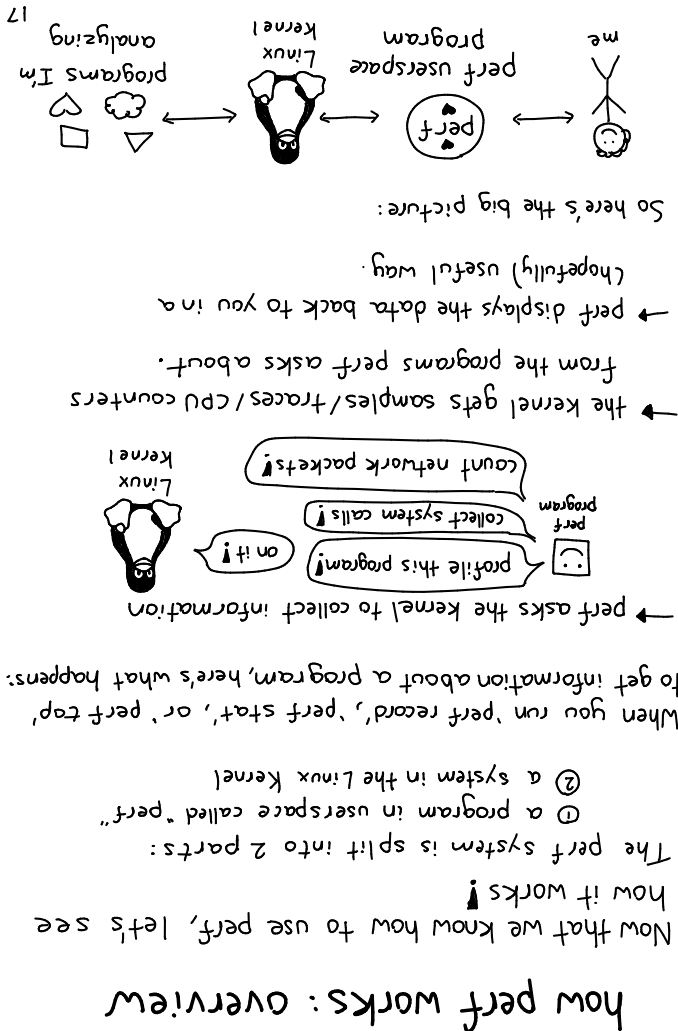 how perf works: overview
Now that we know how to use perf, let's see
how it works!
The perf system is split into 2 parts:
① a program in userspace called "perf"
② a system in the Linux Kernel
When you run 'perf record', 'perf stat', or 'perf top'
to get information about a program, here's what happens:
→ perf asks the kernel to collect information
perf
program
profile this program!
collect system calls!
count network packets!
on it!
Linux
Kernel
→ the kernel gets samples/traces/CPU counters
from the programs perf asks about.
→ perf displays the data back to you in a
(hopefully) useful way.
So here's the big picture:
me
perf
perf userspace
program
Linux
Kernel
programs I'm
analyzing
17